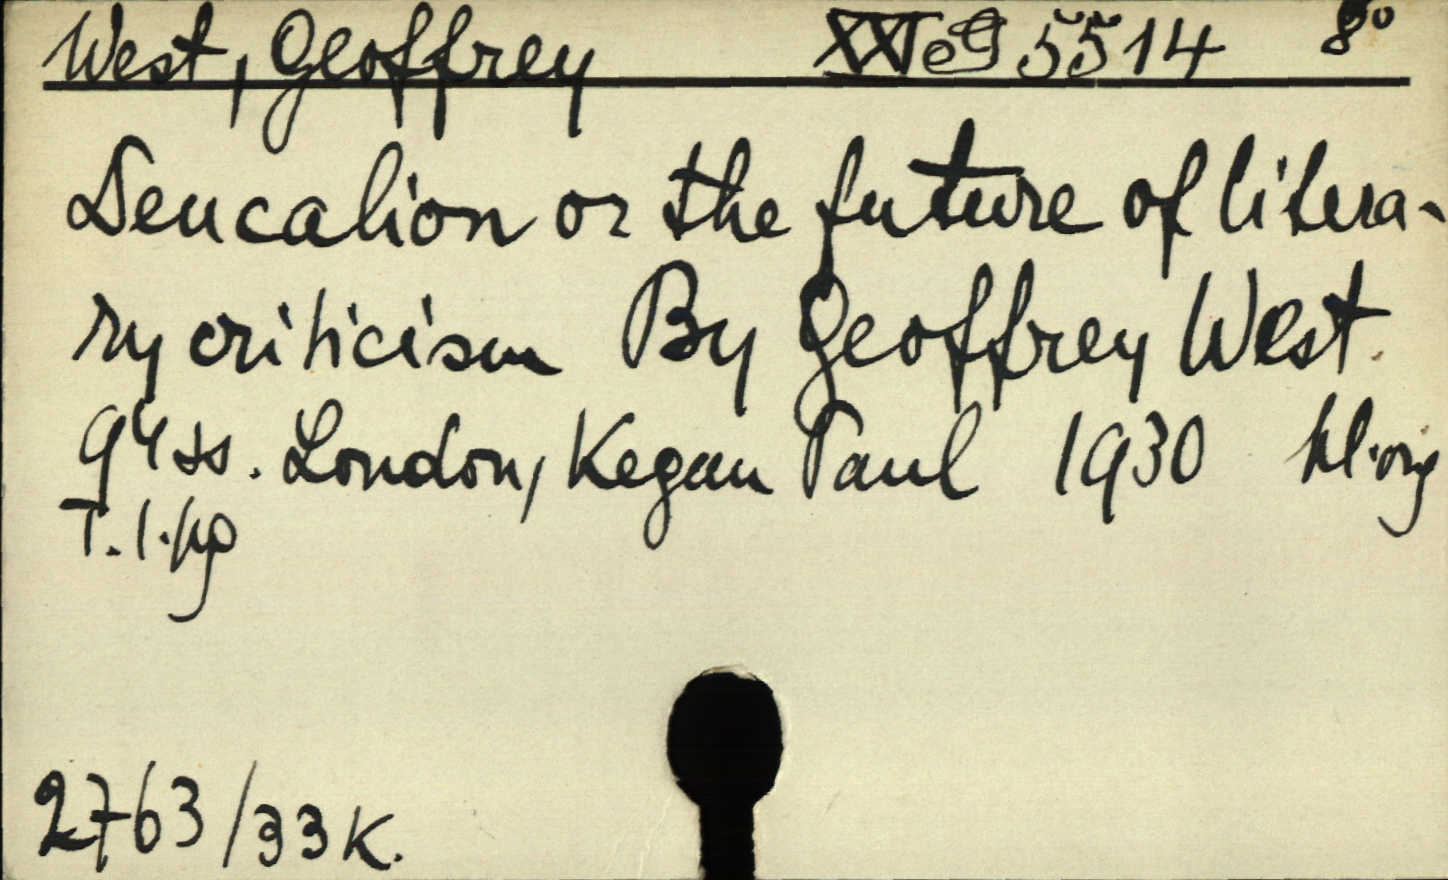 West, Geoffrey XXI e G 5514 8º
Deucalion or the future of litera-
ry criticism By Geoffrey West.
94 ss. London, Kegan Paul 1930 kl. orig
T. 1. kp
2763/33 K.